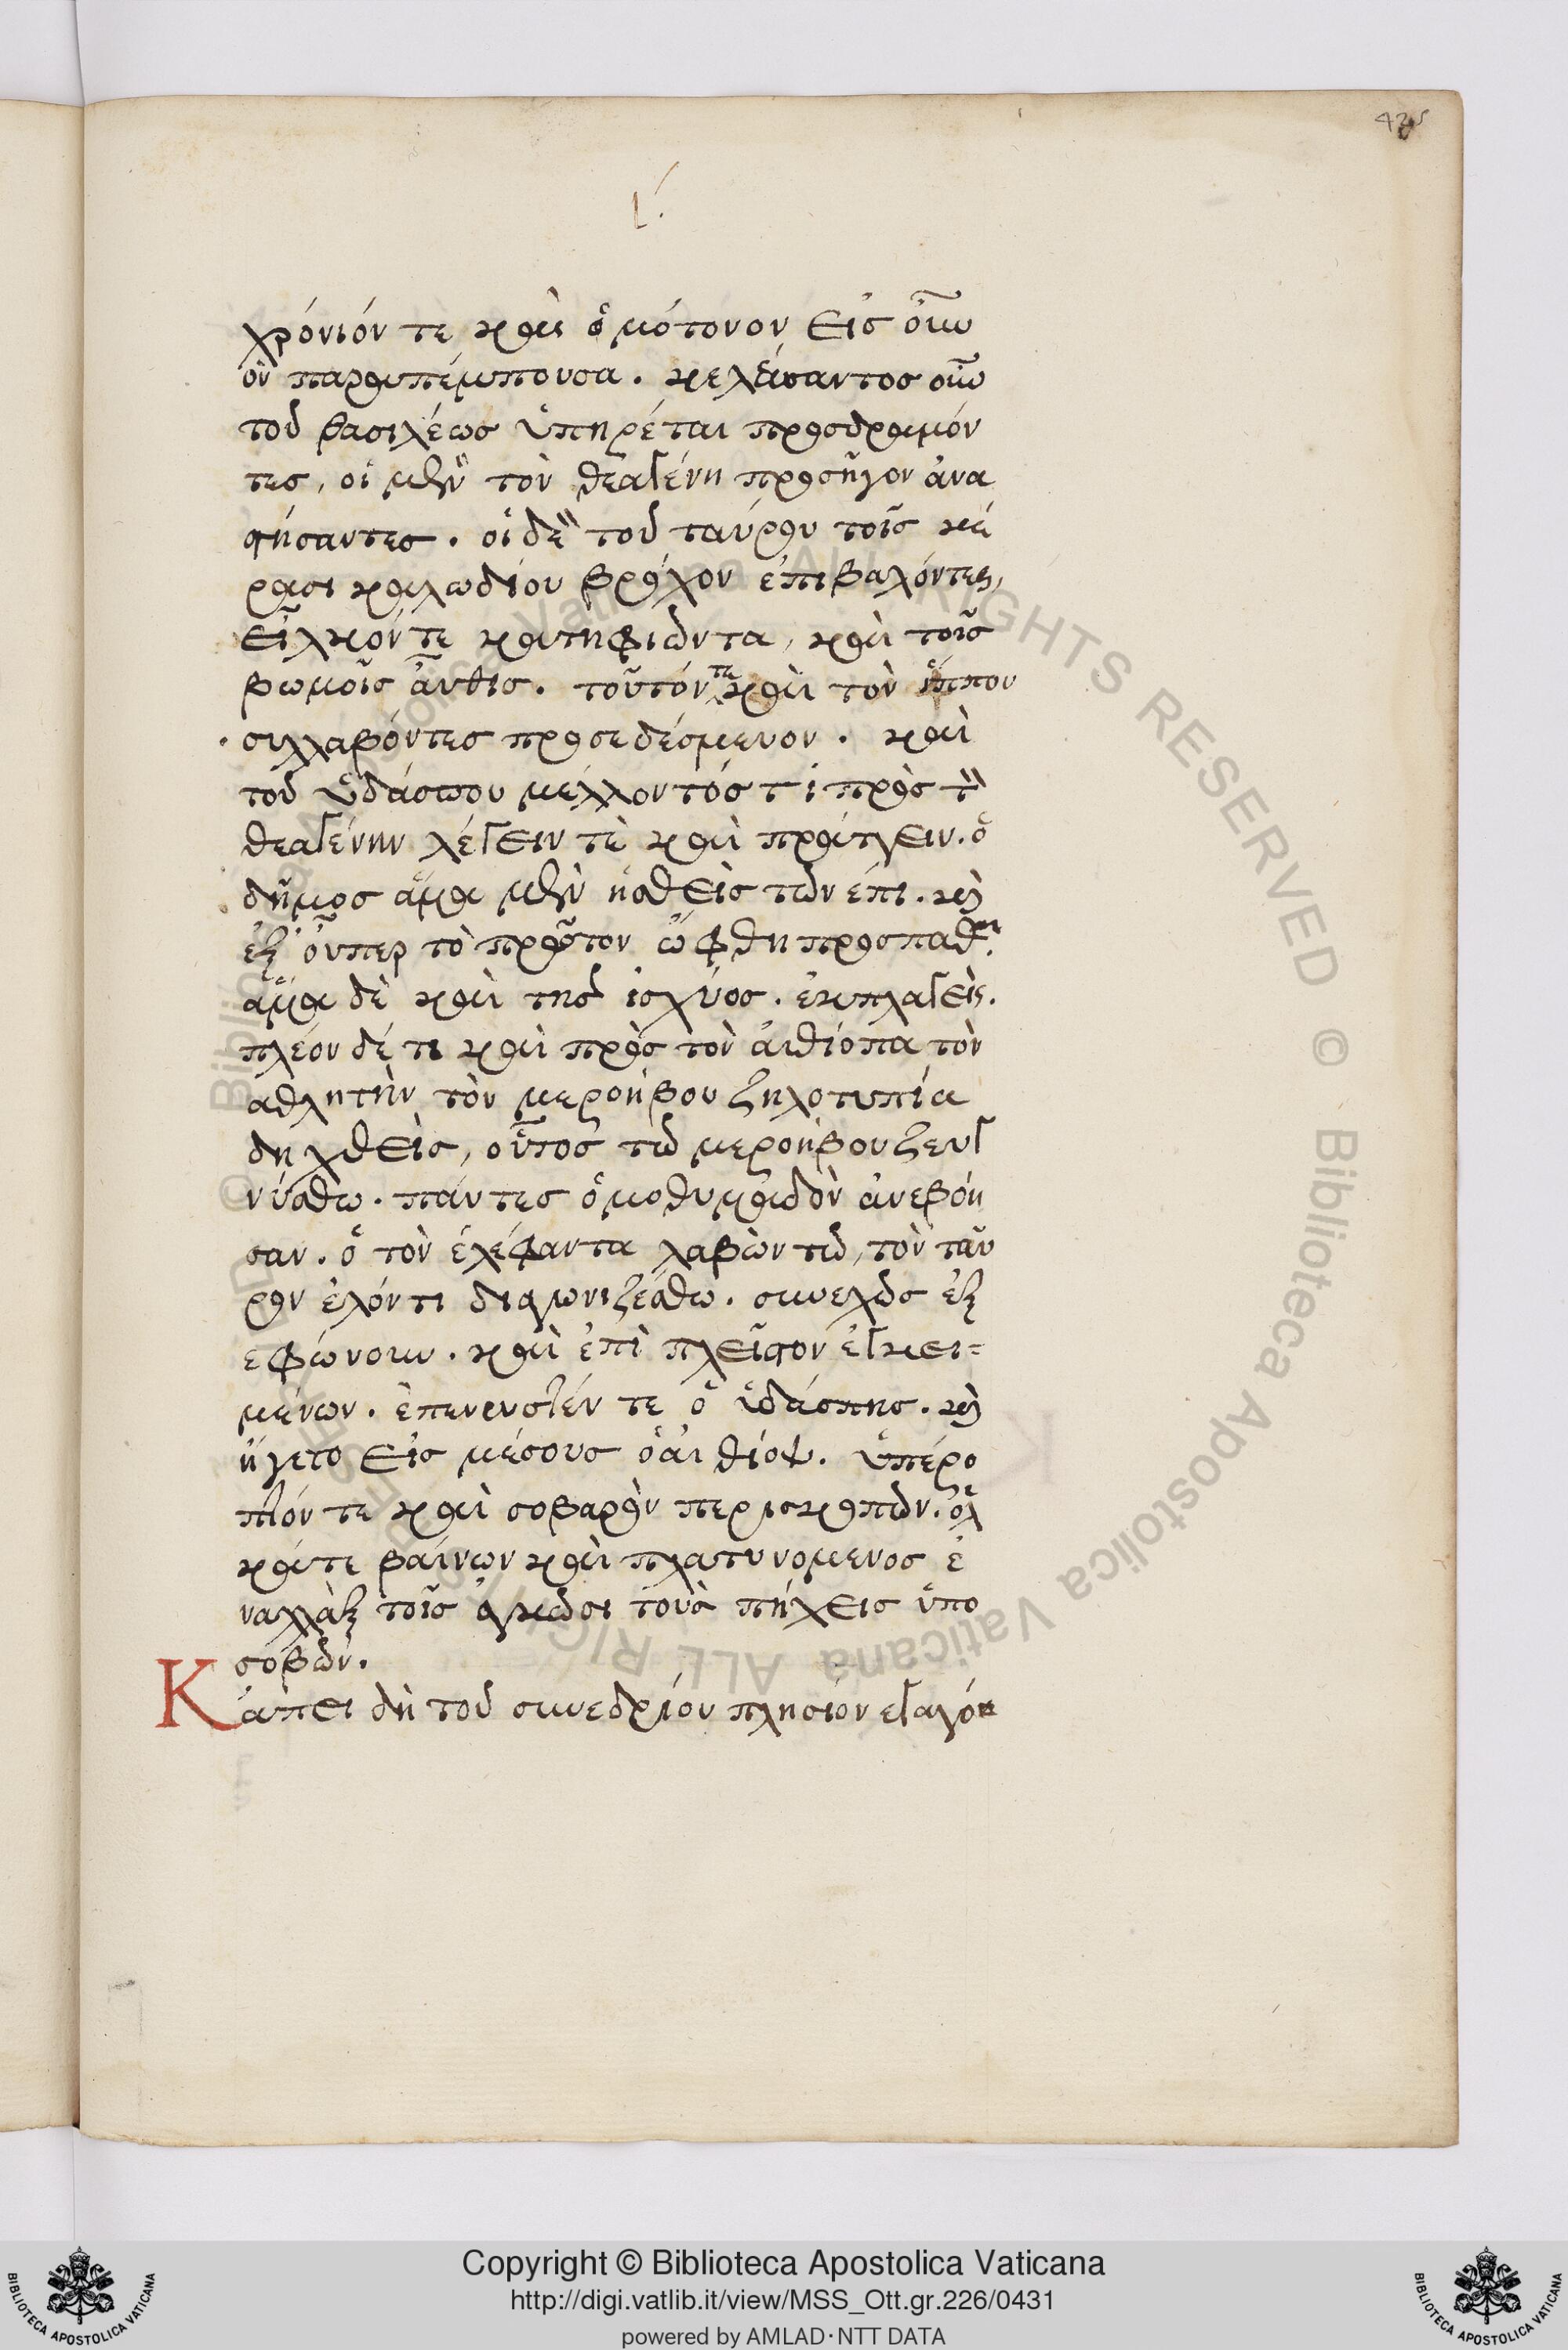 425
ι´.
χρόνιόν τε καὶ ὁμότονον εἰς οὐρα
ὸν παραπέμπουσα. κελεύσαντος οὖν
τοῦ βασιλέως ὑπηρέται προσδραμόν
τες, οἱ μὲν τὸν θεαγένη προσῆγον ἀνα
στήσαντες. οἱ δὲ τοῦ ταύρου τοῖς κέ
ρασι καλωδίου βρόχον ἐπιβαλόντες,
εἷλκόν τε κατηφιῶντα, καὶ τοῖς
βωμοῖς αὖθις. τοῦτόν τε καὶ τὸν ἵππον
συλλαβόντες προσεδέσμευον. καὶ
τοῦ ὑδάσπου μέλλοντός τι πρὸς τὸν
θεαγένην λέγειν τὲ καὶ πράττειν. ὁ
δῆμος ἅμα μὲν ἡσθεὶς τῶν ἐπι. καὶ
ἐξ οὗπερ τὸ πρῶτον ὤφθη προσπαθῶν
ἅμα δὲ καὶ τῆς ἰσχύος. ἐκπλαγεὶς.
πλέον δέ τι καὶ πρὸς τὸν αἰθίοπα τὸν
αθλητὴν τὸν μεροήβου ζηλοτυπία
δηχθεὶς, οὗτος τῶ μεροήβου ζευγ
νύσθω. πάντες ὁμοθυμαδὸν ἀνεβόη
σαν. ὁ τὸν ἐλέφαντα λαβὼν τῶ, τὸν ταῦ
ρον ἑλόντι διαγωνιζέσθω. συνεχῶς ἐξ
εφώνουν. καὶ ἐπὶ πλεῖστον ἐγκει-
μένων. ἐπένευσέν τε ὁ ὑδάσπης. καὶ
ἤγετο εἰς μέσους ὁ αἰθίοψ. ὑπέρο
πτόν τε καὶ σοβαρὸν περισκοπῶν. ὁλ
κά τε βαίνων καὶ πλατυνομενος ἐ
ναλλὰξ τοῖς ἀγκῶσι τοὺς πήχεις ὑπο
σοβῶν.
Κάπει δὴ τοῦ συνεδρίου πλησίον εγαγόν
Copyright © Biblioteca Apostolica Vaticana
http://digi.vatlib.it/view/MSS_Ott.gr.226/0431
powered by AMLAD·NTT DATA